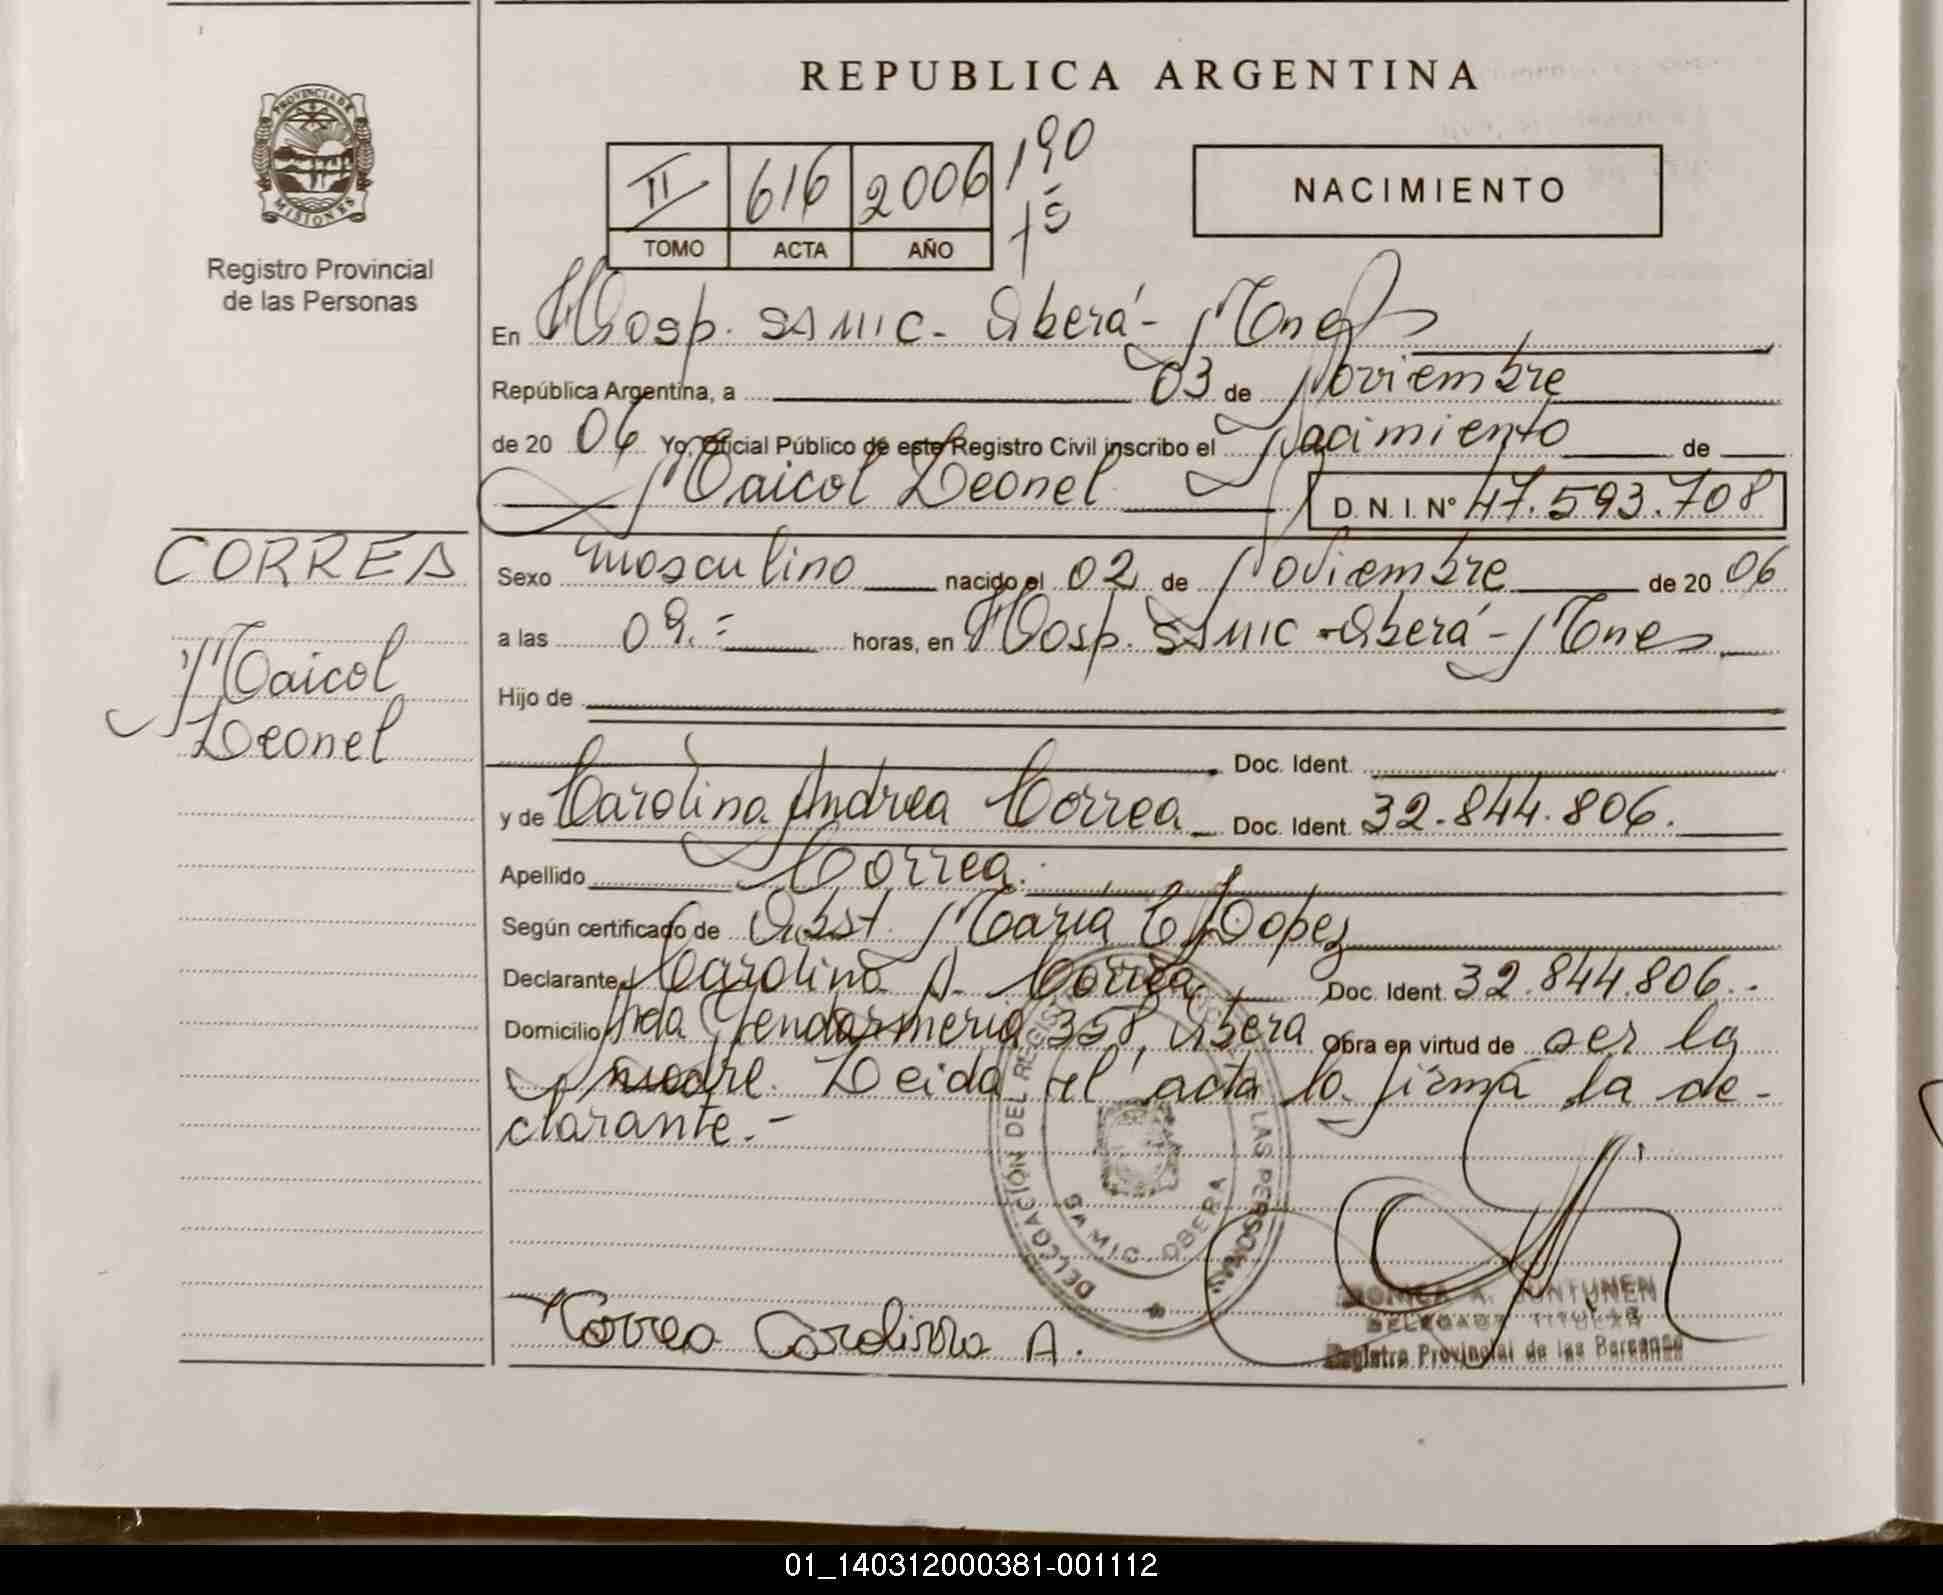 REPUBLICA ARGENTINA
PROVINCIA DE MISIONES
Registro Provincial
de las Personas
II 616 2006 190
TOMO ACTA AÑO
NACIMIENTO
En Hosp. SAMIC - Oberá - Mnes
República Argentina, a 03 de Noviembre
de 20 06 Yo, Oficial Público de este Registro Civil inscribo el Nacimiento de
Maicol Leonel D. N. I. Nº 47.593.708
CORREA
Maicol
Leonel
Sexo masculino nacido el 02 de Noviembre de 20 06
a las 09.= horas, en Hosp. SAMIC - Oberá - Mnes
Hijo de
Doc. Ident.
y de Carolina Andrea Correa Doc. Ident. 32.844.806.
Apellido Correa.
Según certificado de Obst. María C. Lopez
Declarante Carolina A. Correa Doc. Ident. 32.844.806.-
Domicilio Avda Gendarmeria 358, Oberá Obra en virtud de ser la
madre. Leida el acta la firma la de-
clarante.-
DELEGACIÓN DEL REGISTRO LAS PERSONAS
SAMIC OBERA
Correa Carolina A.
A. JUNTUNEN
DELEGADA TITULAR
Registro Provincial de las Personas
01_140312000381-001112